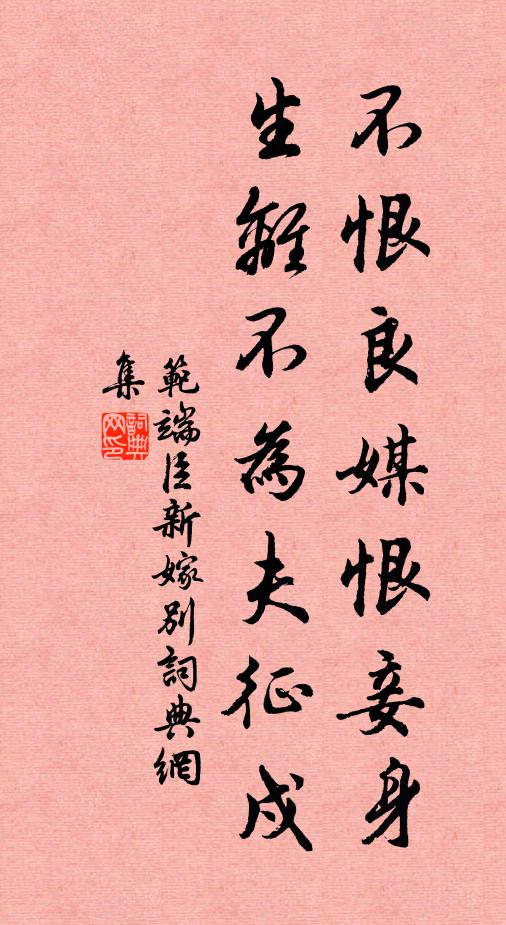 不恨良媒恨妾身
生離不為夫征戍
範端臣新嫁別詞典網
集
詞典網印